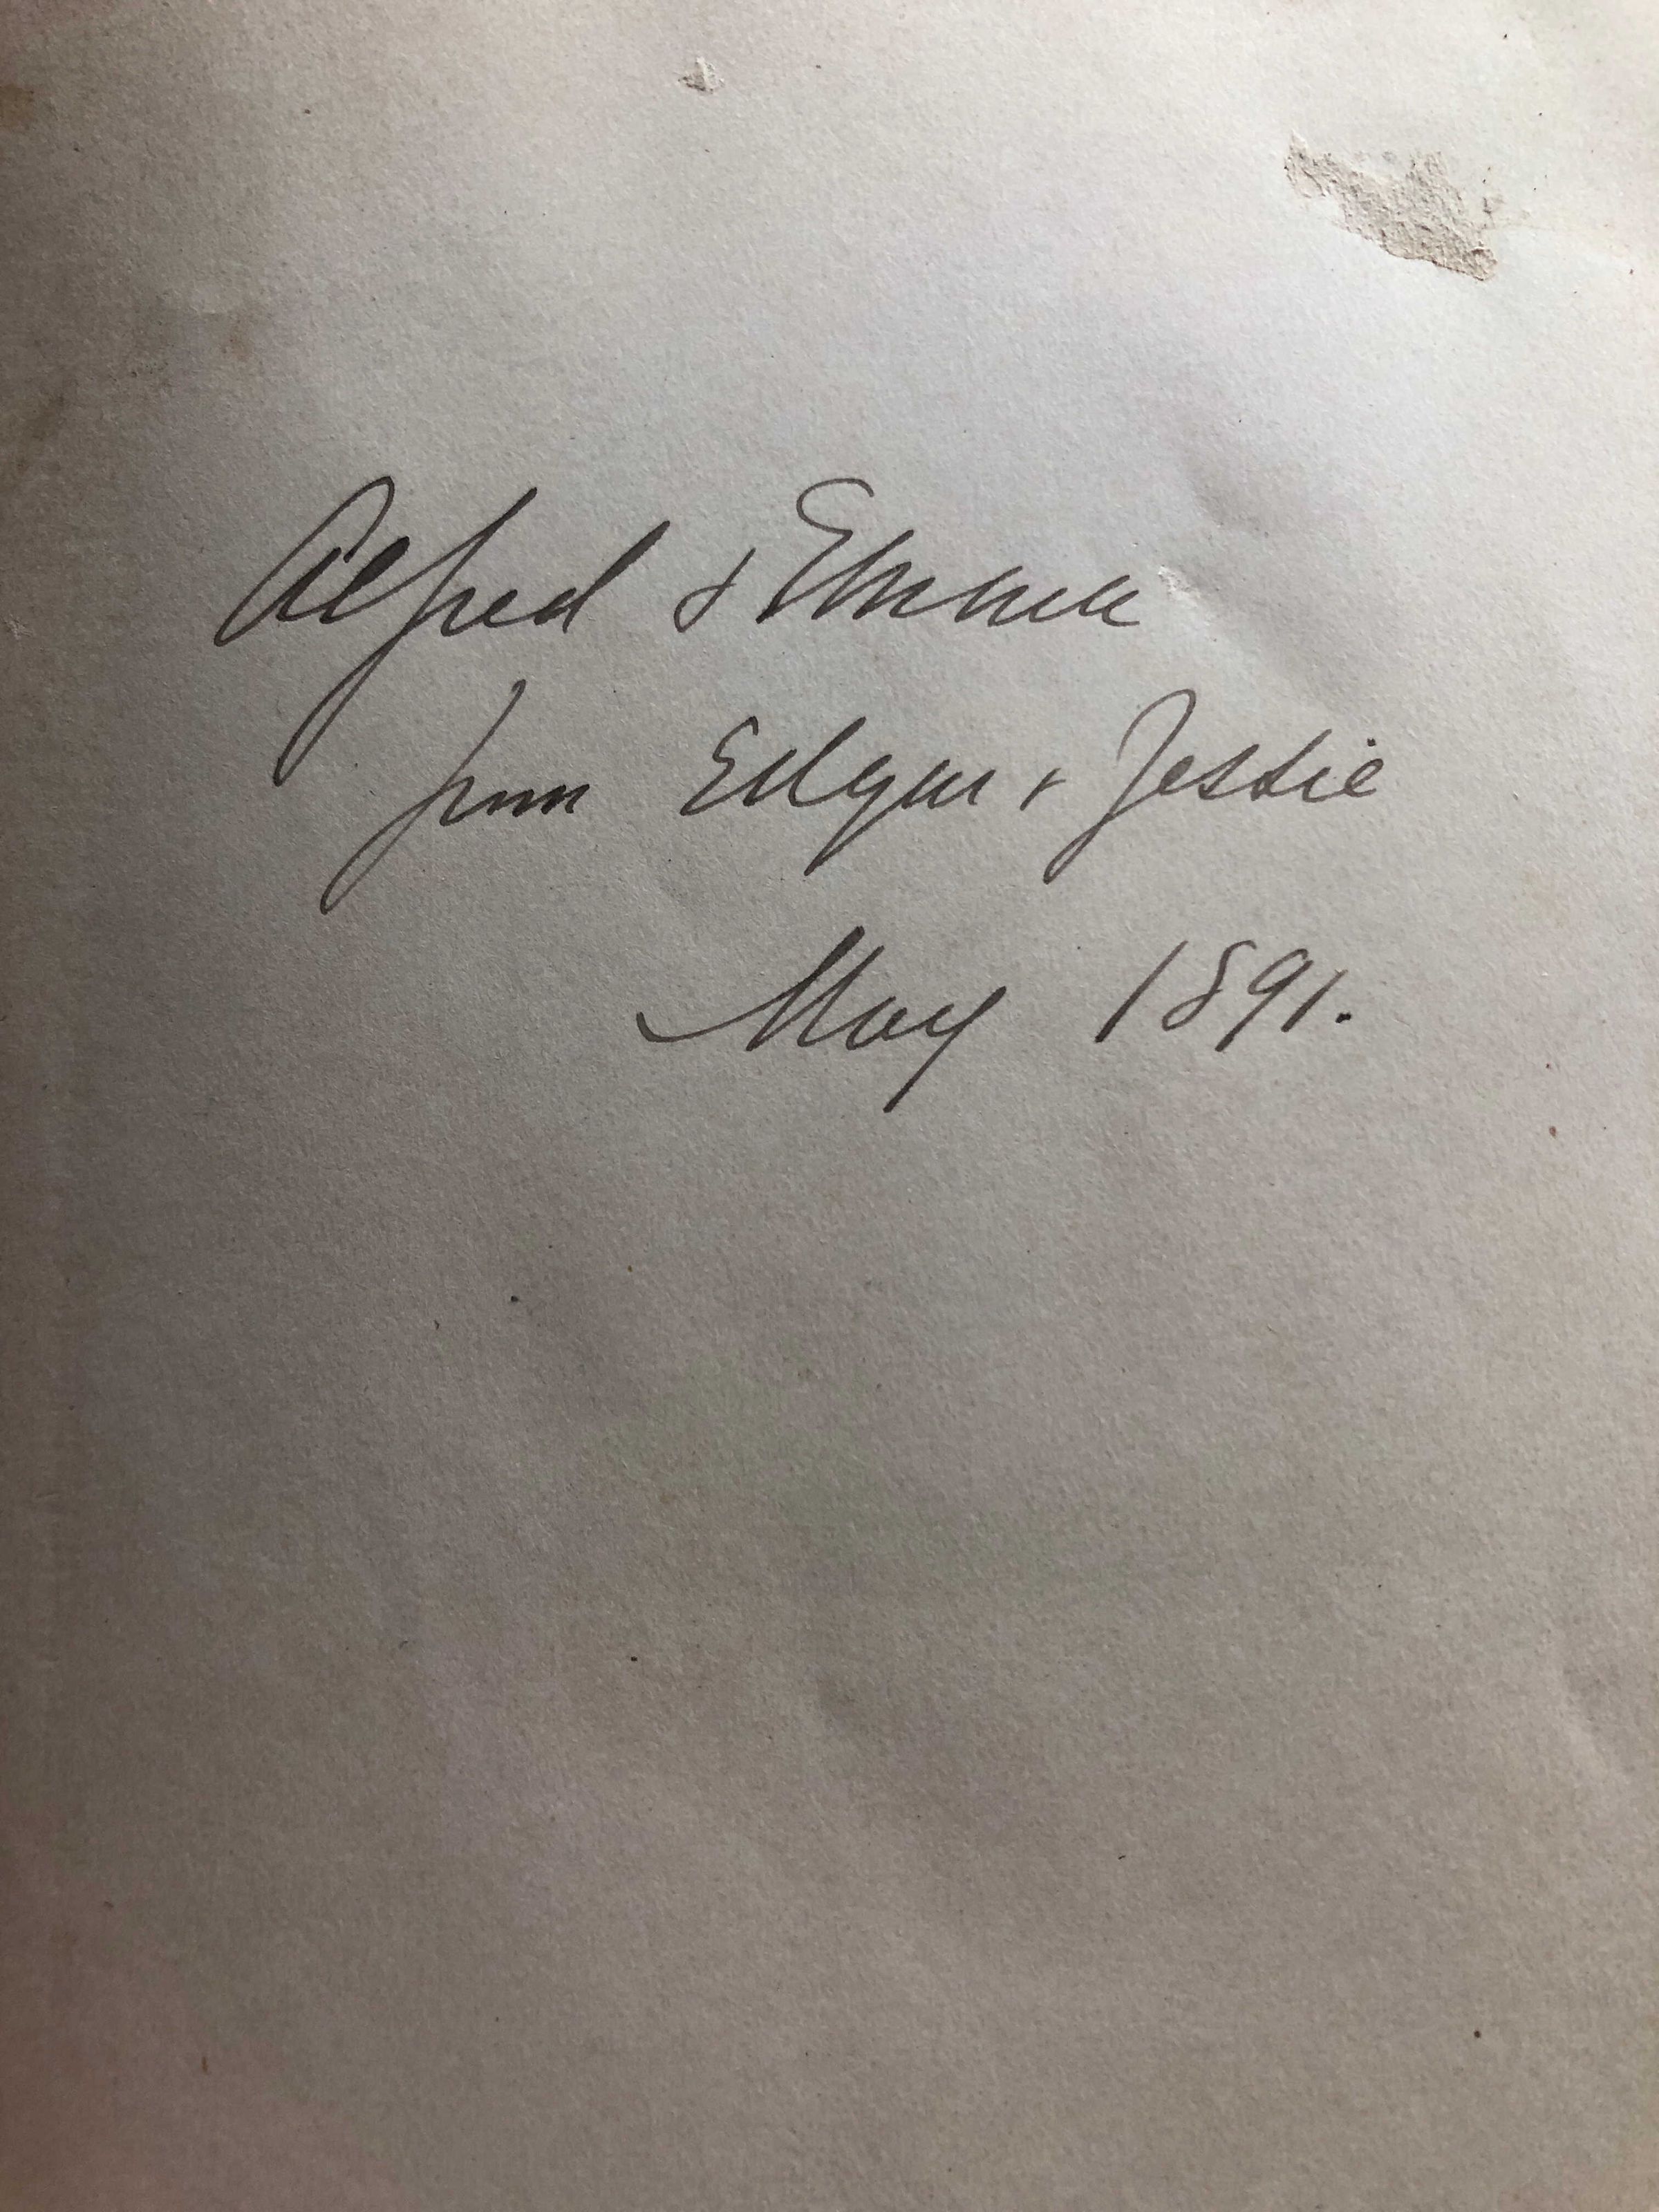 Alfred & Emma
from Edgar & Jessie
May 1891.